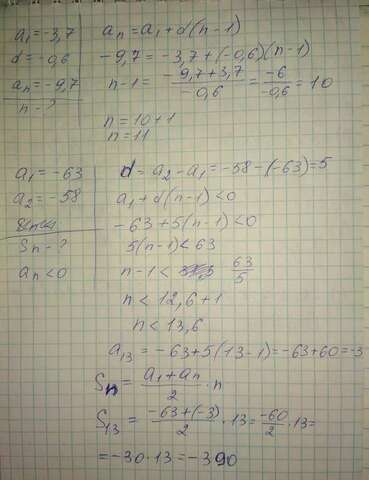 a₁ = -3,7
d = -0,6
aₙ = -9,7
n - ?
aₙ = a₁ + d(n-1)
-9,7 = -3,7 + (-0,6)(n-1)
n-1 = (-9,7+3,7)/(-0,6) = -6/-0,6 = 10
n = 10+1
n = 11
a₁ = -63
a₂ = -58
Sₙ - ?
aₙ < 0
d = a₂ - a₁ = -58 - (-63) = 5
a₁ + d(n-1) < 0
-63 + 5(n-1) < 0
5(n-1) < 63
n-1 < 63/5
n < 12,6 + 1
n < 13,6
a₁₃ = -63 + 5(13-1) = -63 + 60 = -3
Sₙ = (a₁ + aₙ)/2 · n
S₁₃ = (-63+(-3))/2 · 13 = -60/2 · 13 =
= -30 · 13 = -390